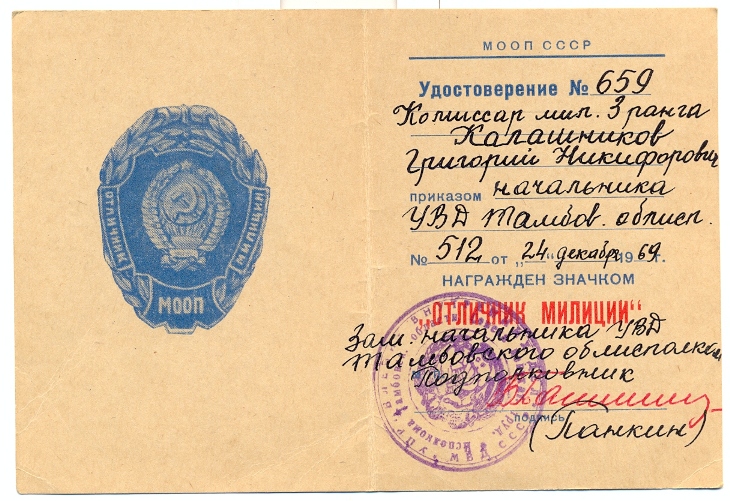 ОТЛИЧНИК
МИЛИЦИИ
МООП
МООП СССР
Удостоверение № 659
Комиссар мил. 3 ранга
Калашников
Григорий Никифорович
приказом начальника
УВД Тамбов. облисп.
№ 512 от „24" декабря 1969 г.
НАГРАЖДЕН ЗНАЧКОМ
„ОТЛИЧНИК МИЛИЦИИ"
Зам. начальника УВД
Тамбовского облисполкома
Подполковник
подпись
(Панкин)